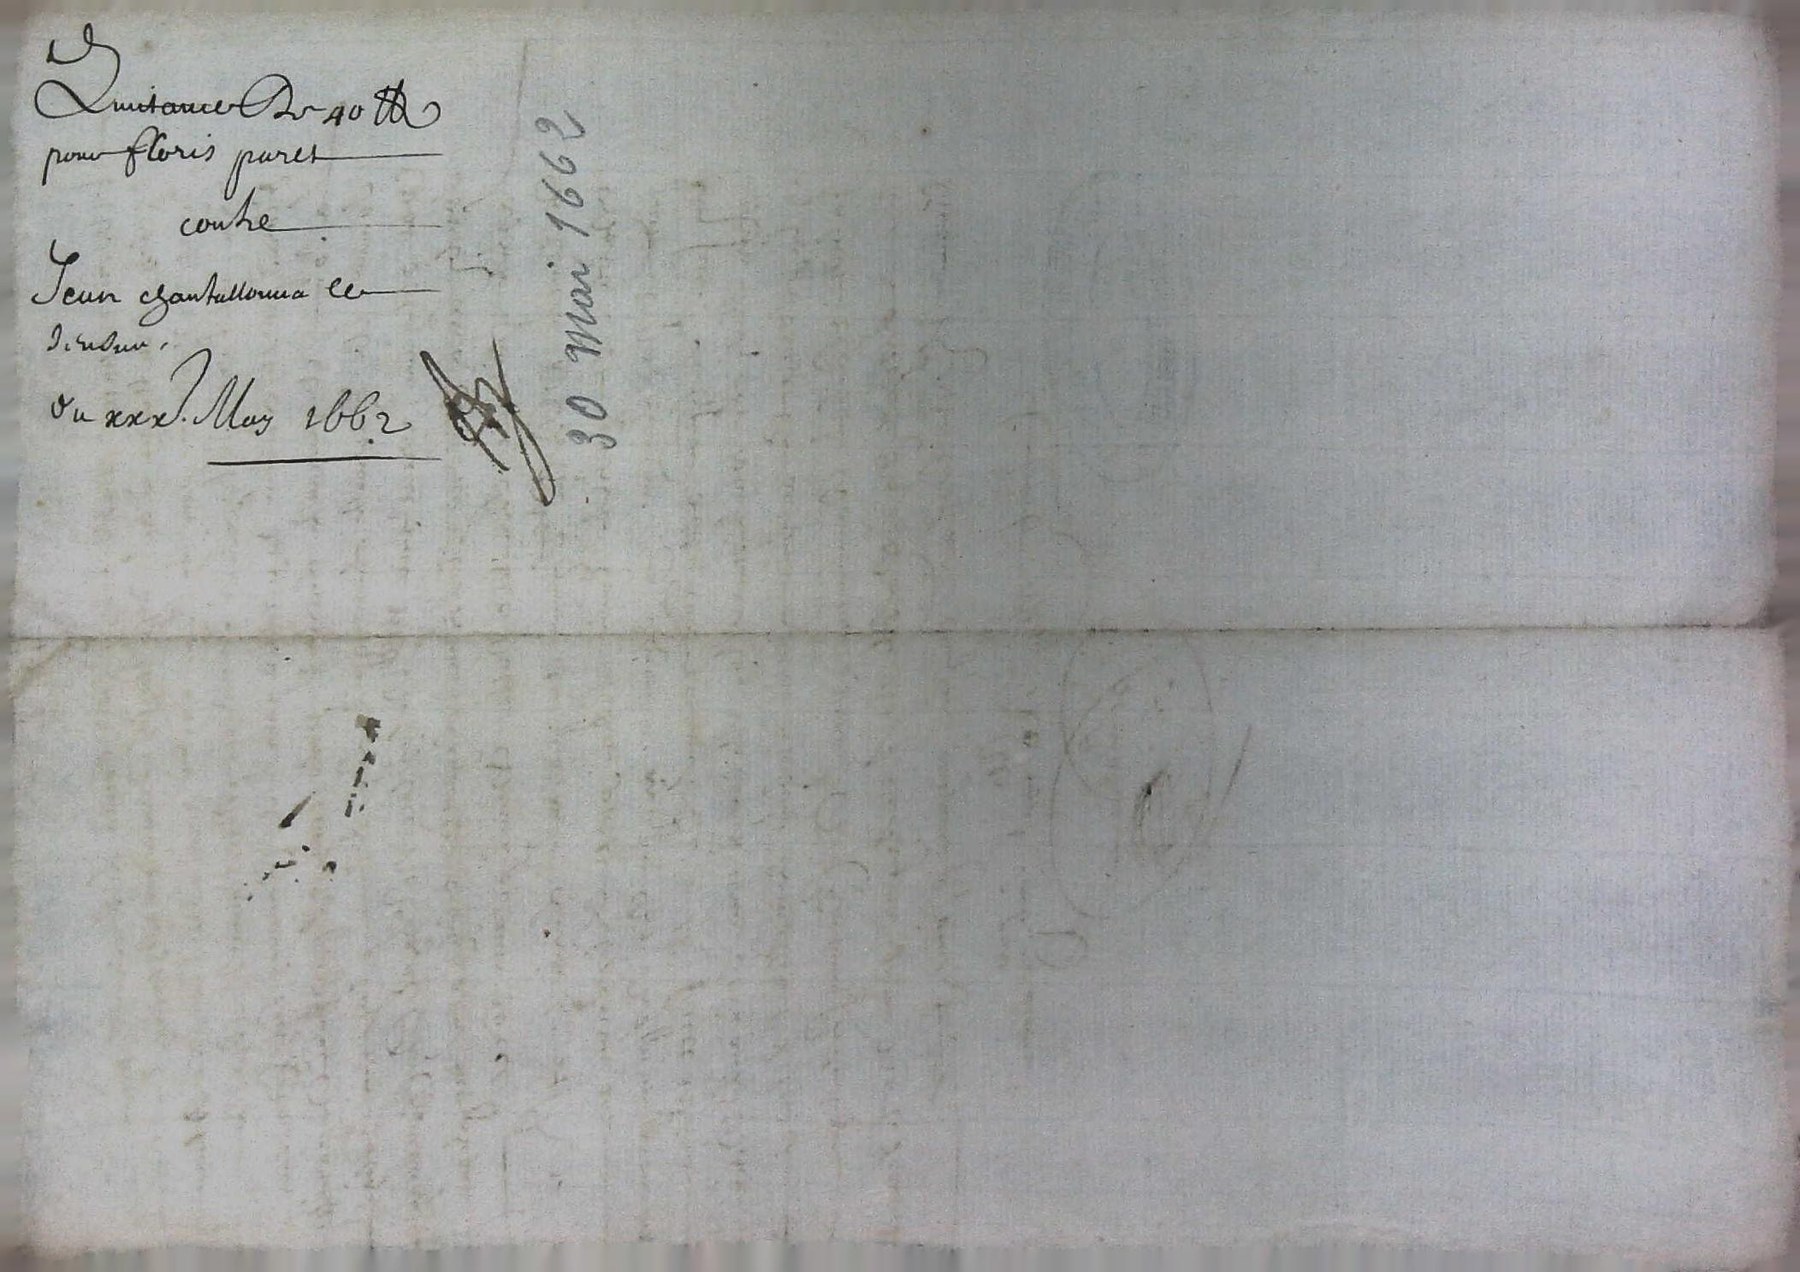 Quitance De 40 tt
pour floris puret
contre
Jean chantallouua le
du xxx. May 1662
30 mai 1662